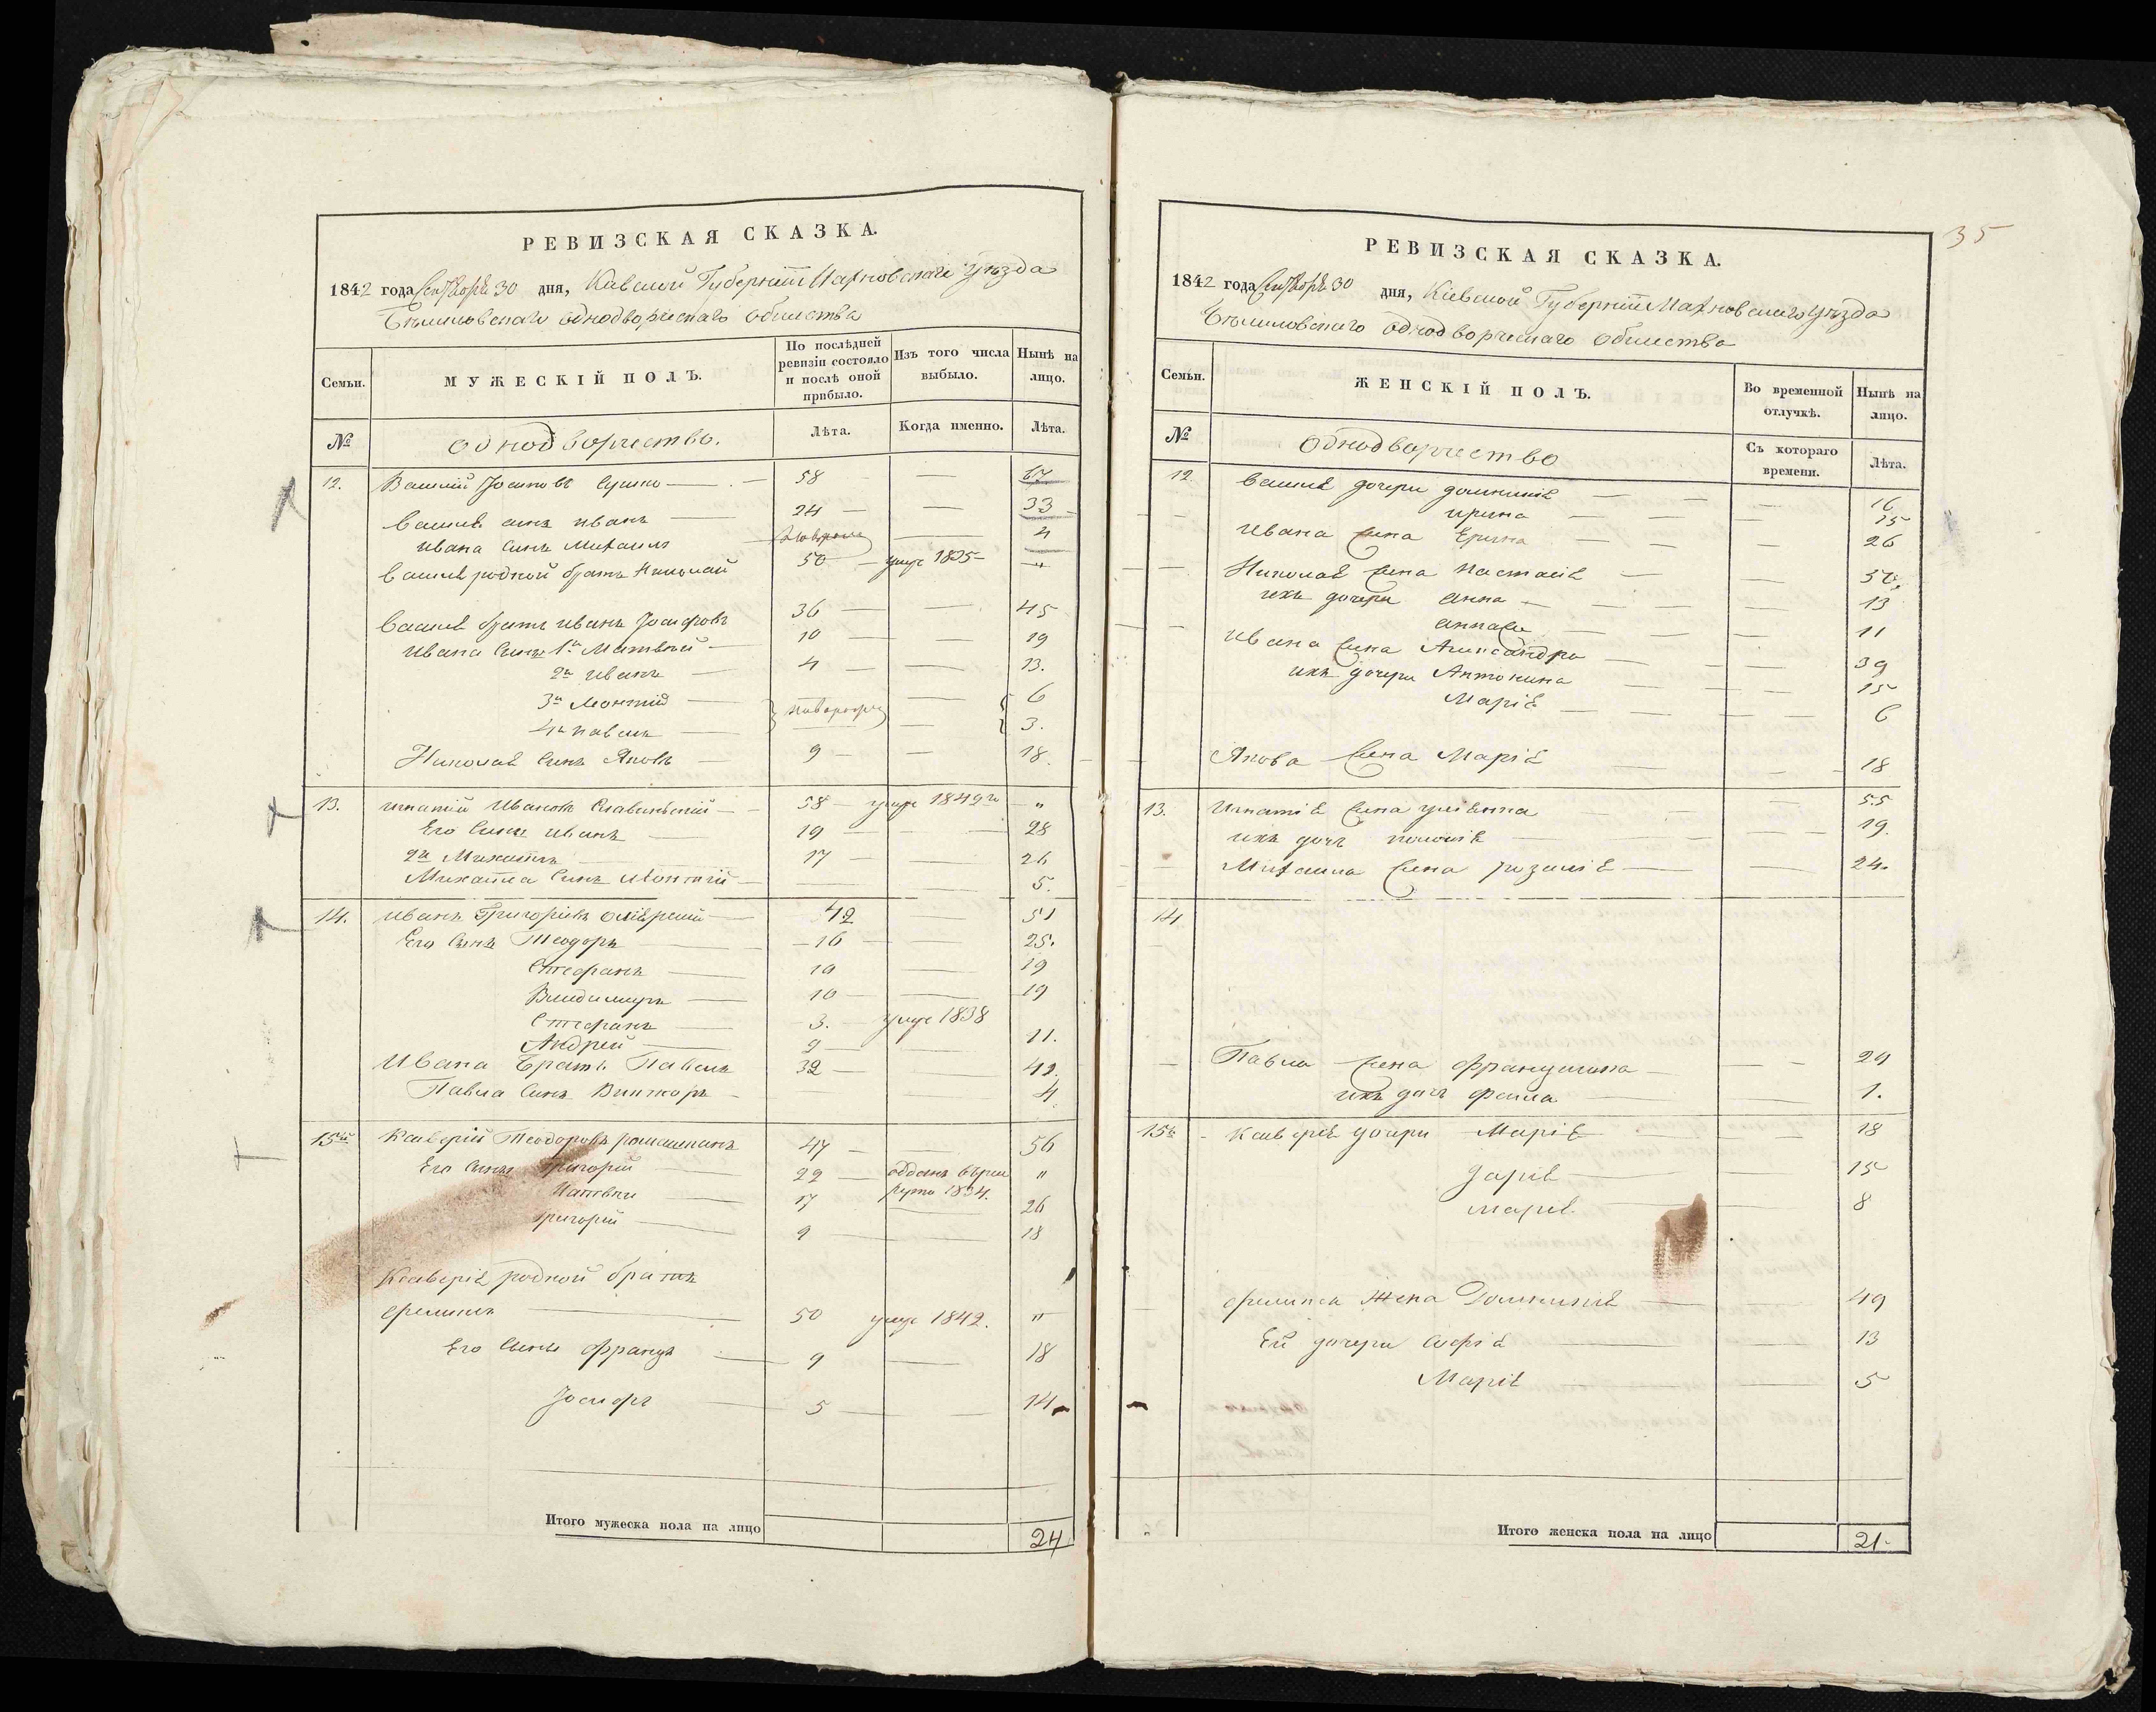 РЕВИЗСКАЯ СКАЗКА.
1842 года Сентября 30 дня, Кіевской Губерніи Махновскаго Уѣзда
Бѣлиловскаго однодворческаго общества
Семьи.
МУЖЕСКІЙ ПОЛЪ.
По послѣдней ревизіи состояло и послѣ оной прибыло.
Изъ того числа выбыло.
Нынѣ на лицо.
№
однодворчество.
Лѣта.
Когда именно.
Лѣта.
12. Василій Іосиповъ 58 — 67
Василія сынъ Иванъ 24 — 33
Ивана сынъ Михаилъ — 4
Василія родной братъ Николай 50 — умре 1835 — "
Василія братъ Иванъ Іосифовъ 36 — 45
Ивана сынъ 1й Матвѣй 10 — 19
2й Иванъ 4 — 13.
3й Леонтій — 6
4й Павелъ — 3.
Николая сынъ Яковъ 9 — 18.
13. Игнатій Ивановъ Славинскій 58 — умре 1842го — "
Его сынъ Иванъ 19 — 28
2й Михаилъ 17 — 26
Михаила сынъ Леонтій — 5.
14. Иванъ Григорьевъ 42 51
Его сынъ Теодоръ 16 — 25.
Стефанъ 10 — 19
Владимиръ 10 — 19
Стефанъ 3. — умре 1838
Андрей 2 — 11.
Ивана Братъ Павелъ 32 — 42.
Павла сынъ Викторъ — 4
15й Ксаверій Теодоровъ 47 — 56
Его сынъ Григорій 22 — отданъ въ рекруты 1834. "
Матвѣй 17 — 26
Григорій 9 — 18
Ксаверія родной братъ
Феликсъ 50 умре 1842. "
Его сынъ Францъ 9 — 18
Іосифъ 5 — 14
Итого мужеска пола на лицо 24
35
РЕВИЗСКАЯ СКАЗКА.
1842 года Сентября 30 дня, Кіевской Губерніи Махновскаго уѣзда
Бѣлиловскаго однодворческаго общества
Семьи.
ЖЕНСКІЙ ПОЛЪ.
Во временной отлучкѣ.
Нынѣ на лицо.
№
Однодворчество
Съ котораго времени.
Лѣта.
12. Василія дочери Доминикія — 16
Ирина — 15
Ивана жена — 26
Николая жена Настасія —
ихъ дочери Анна — 13
— 11
Ивана жена Александра — 39
ихъ дочери Антонина — 15
Марія — 6
Якова жена Марія — 18
13. Игнатія жена Уліянна — 55
ихъ дочь — 19.
Михаила жена Розалія — 24.
14
Павла жена Францишка — 29
ихъ дочь — 1.
15й Ксаверія дочери Марія — 18
Дарія — 15
Марія — 8
Феликса Жена Доминикія — 49
Ей дочери Софія — 13
Марія — 5
Итого женска пола на лицо 21.